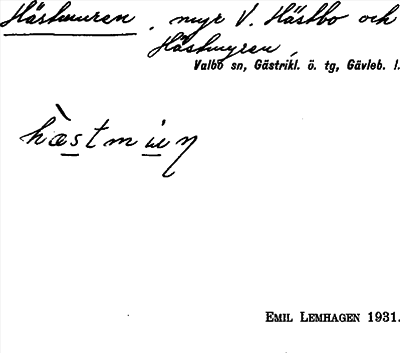 Hästmuren, myr V. Hästbo och
Hästmyren,
Valbo sn, Gästrikl. ö. tg, Gävleb. l.
hæ̀stmʉeɳ
EMIL LEMHAGEN 1931.